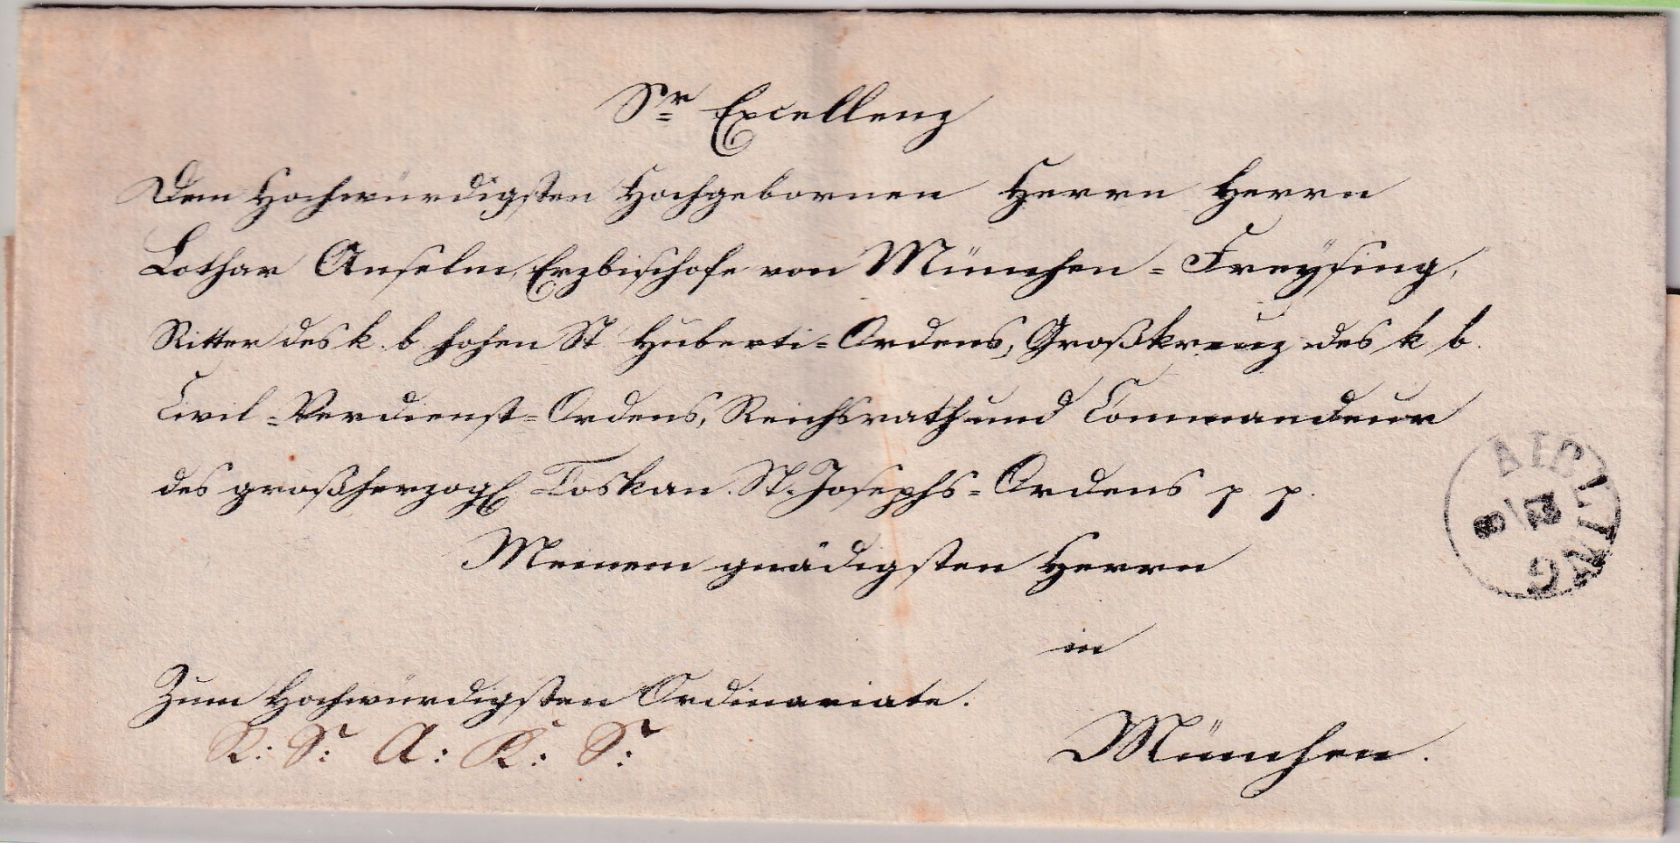 Sr Excellenz
Dem Hochwürdigsten Hochgebornen Herrn Herrn
Lothar Anselm, Erzbischofe von München=Freysing,
Ritter des k. b. hohen St Huberti=Ordens, Großkreuz des k b.
Civil=Verdienst=Ordens, Reichsrath und Commandeur
des großherzogl Toskan. St. Josephs=Ordens p p.
Meinem gnädigsten Herrn
in
Zum Hochwürdigsten Ordinariate.
München.
K: S: A: K: S:
AIBLING
8/2